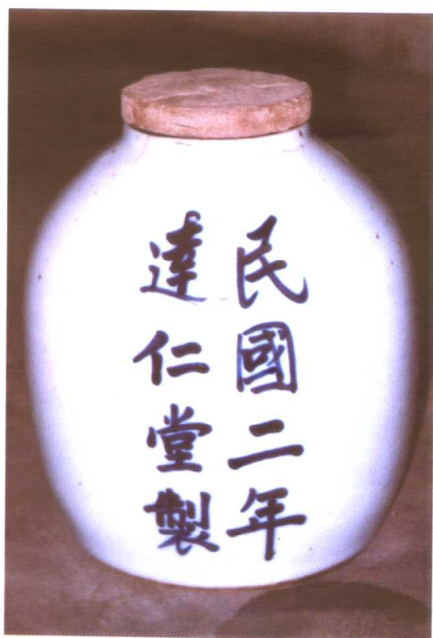 民國二年
達仁堂製